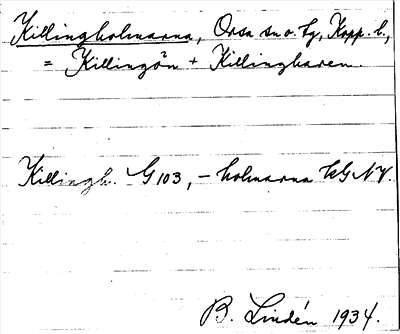 Killingholmarna, Orsa sn o. tg, Kopp. l.,
= Killingön + Killingharen.
Killingh. G 103, – holmarna kG NV.
B. Lindén 1934.